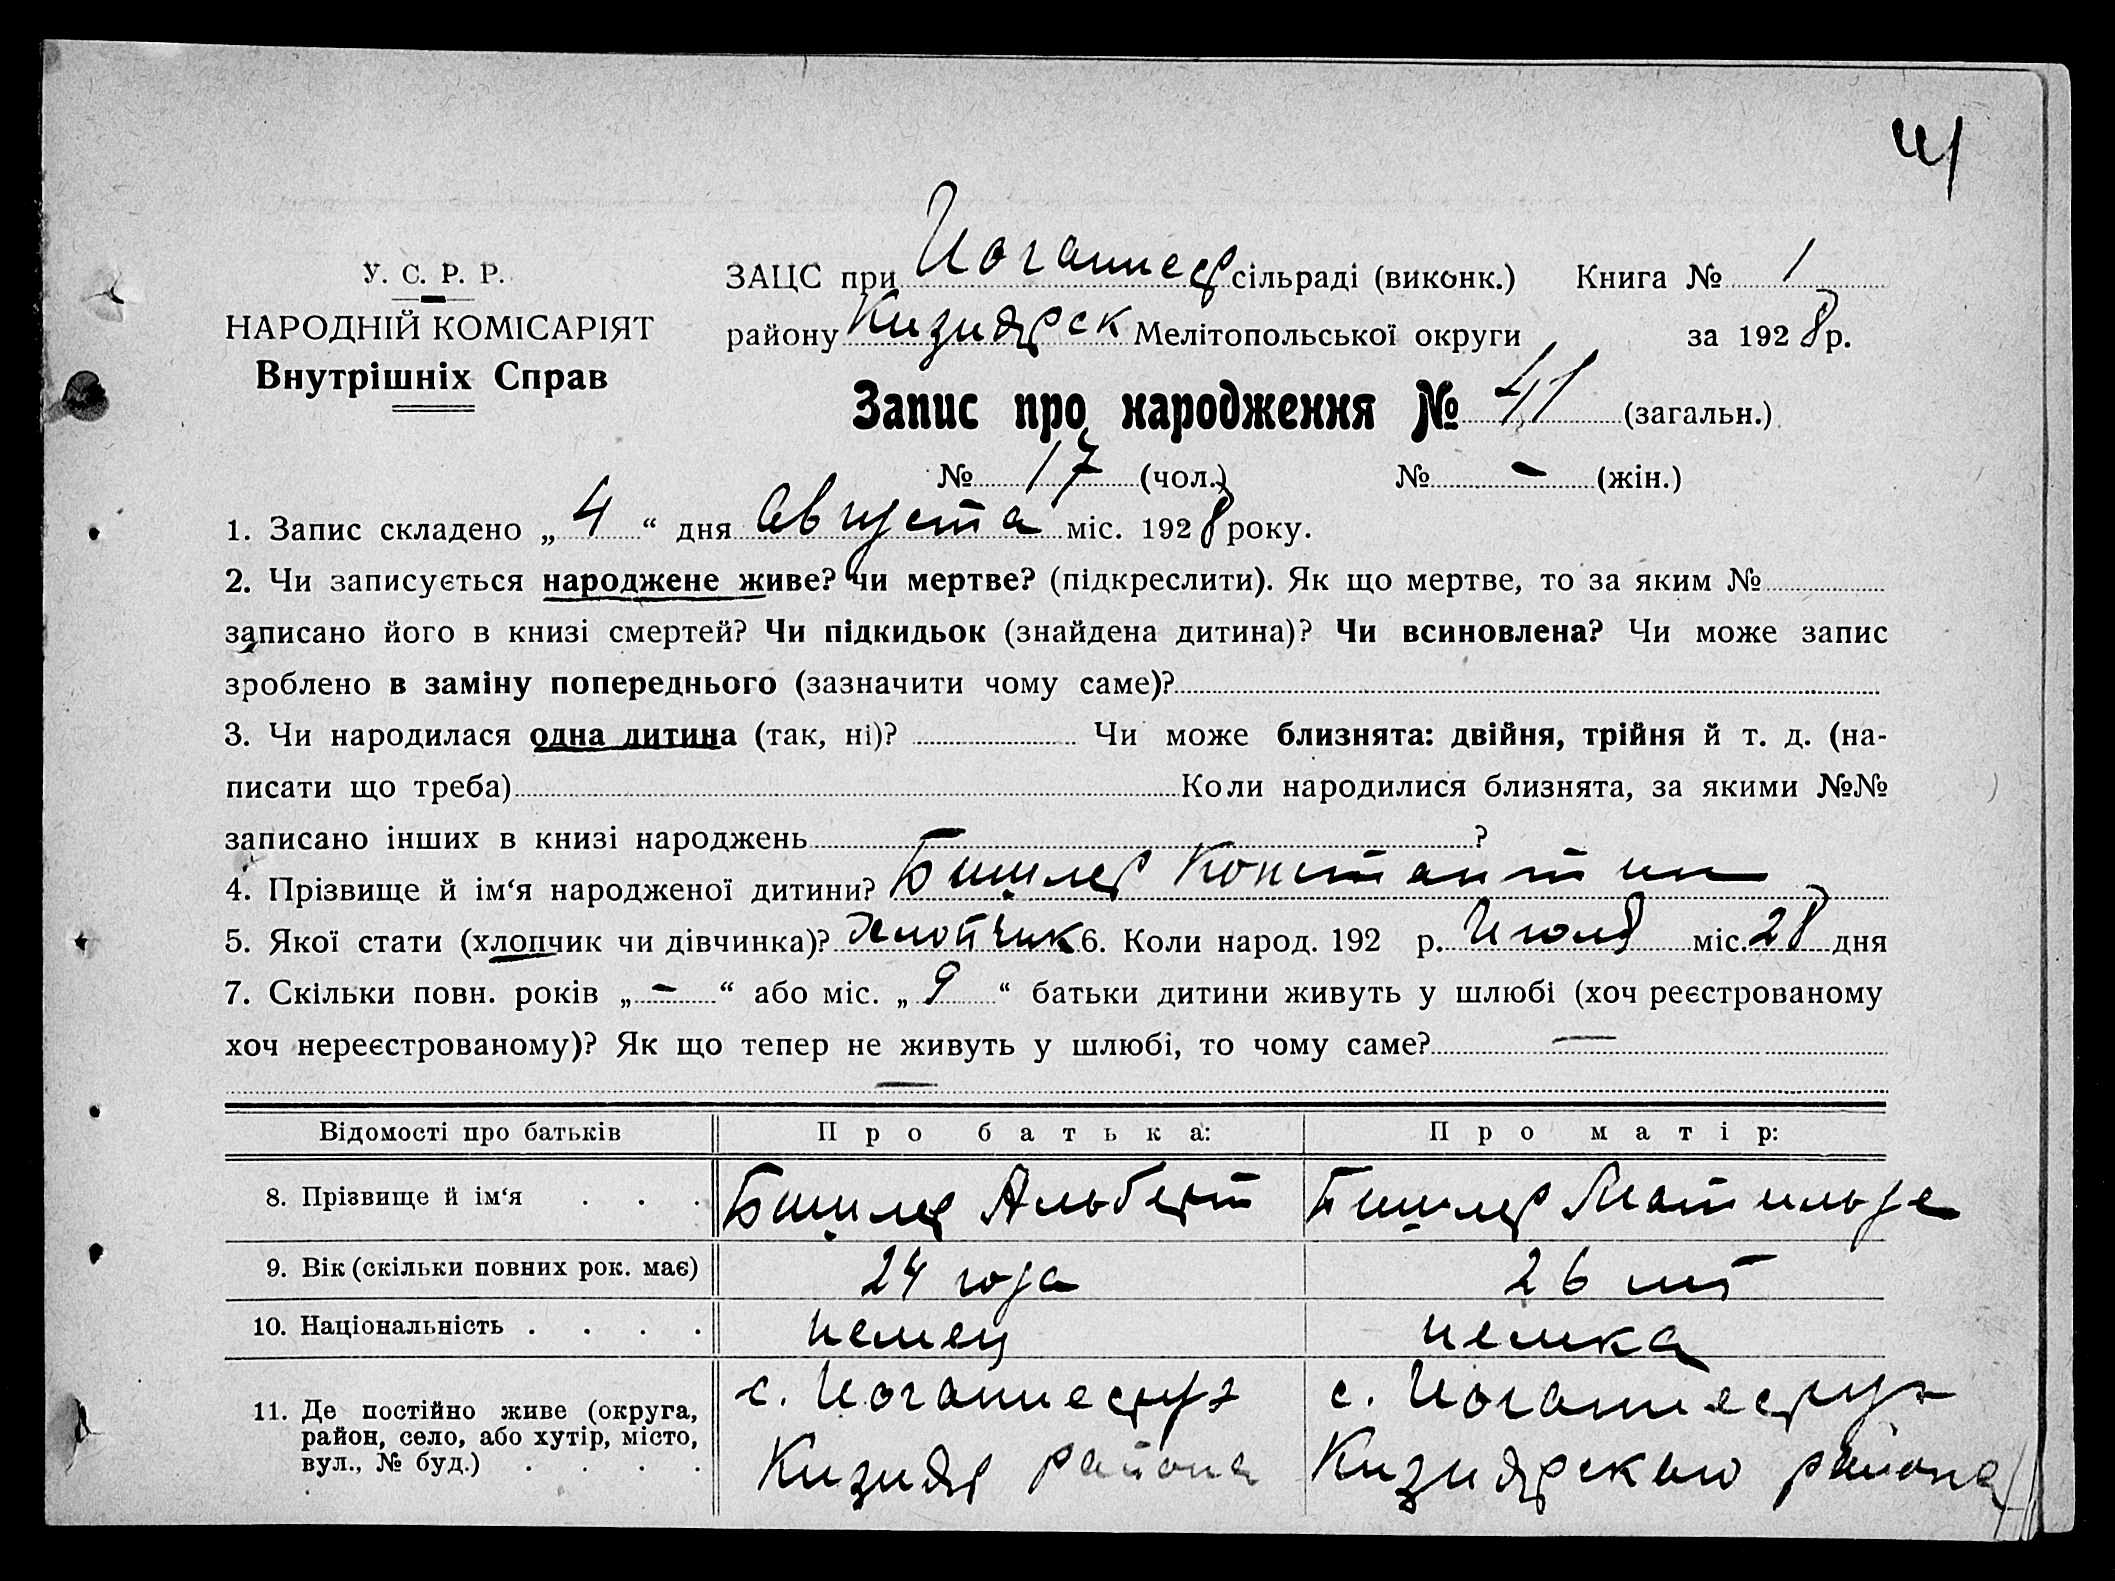 41
У. С. Р. Р.
НАРОДНІЙ КОМІСАРІЯТ
Внутрішніх Справ
ЗАЦС при Иоганнеср сільраді (виконк.) Книга № 1
району Кизиярск Мелітопольської округи за 1928 р.
Запис про народження № 41 (загальн.)
№ 17 (чол.) № - (жін.)
1. Запис складено „ 4 “ дня Августа міс. 1928 року.
2. Чи записується народжене живе? чи мертве? (підкреслити). Як що мертве, то за яким №
записано його в книзі смертей? Чи підкидьок (знайдена дитина)? Чи всиновлена? Чи може запис
зроблено в заміну попереднього (зазначити чому саме)?
3. Чи народилася одна дитина (так, ні)? Чи може близнята: двійня, трійня й т. д. (на-
писати що треба) Коли народилися близнята, за якими №№
записано інших в книзі народжень ?
4. Прізвище й ім‘я народженої дитини? Бишлер Константин
5. Якої стати (хлопчик чи дівчинка)? Хлопчик 6. Коли народ. 192 р. Июля міс. 28 дня
7. Скільки повн. років „ - “ або міс. „ 9 “ батьки дитини живуть у шлюбі (хоч реєстрованому
хоч нереєстрованому)? Як що тепер не живуть у шлюбі, то чому саме? —
—
Відомості про батьків Про батька: Про матір:
8. Прізвище й ім‘я . . . Бишлер Альберт Бишлер Матильда
9. Вік (скільки повних рок. має) 24 года 26 лет
10. Національність . . . . немец немка
11. Де постійно живе (округа, район, село, або хутір, місто, вул., № буд.) . . . . с. Иоганнесру с. Иоганнесру
Кизияр района Кизиярского района